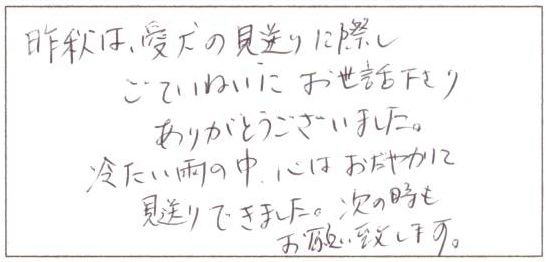 昨秋は、愛犬の見送りに際し
ごていねいに お世話下さり
ありがとうございました。
冷たい雨の中、心は おだやかに
見送りできました。次の時も
お願い致します。